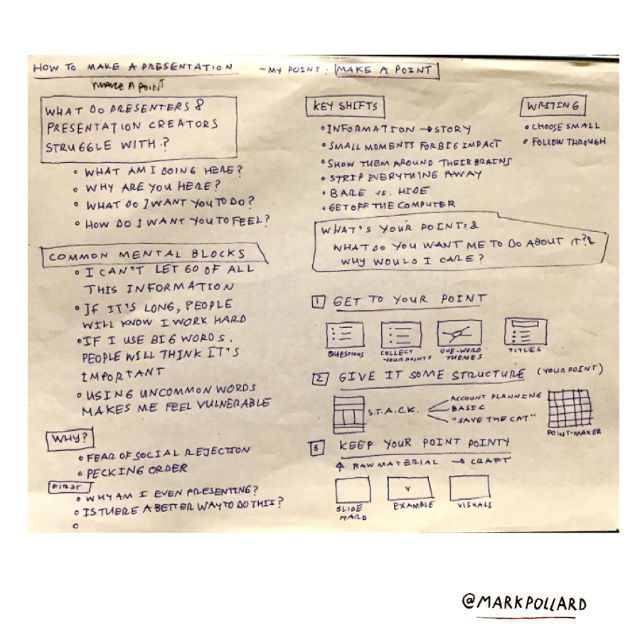 HOW TO MAKE A PRESENTATION
- MY POINT: MAKE A POINT
MAKE A POINT
WHAT DO PRESENTERS &
PRESENTATION CREATORS
STRUGGLE WITH?
• WHAT AM I DOING HERE?
• WHY ARE YOU HERE?
• WHAT DO I WANT YOU TO DO?
• HOW DO I WANT YOU TO FEEL?
COMMON MENTAL BLOCKS
• I CAN'T LET GO OF ALL
THIS INFORMATION
• IF IT'S LONG, PEOPLE
WILL KNOW I WORK HARD
• IF I USE BIG WORDS,
PEOPLE WILL THINK IT'S
IMPORTANT
• USING UNCOMMON WORDS
MAKES ME FEEL VULNERABLE
WHY?
• FEAR OF SOCIAL REJECTION
• PECKING ORDER
FIRST
• WHY AM I EVEN PRESENTING?
• IS THERE A BETTER WAY TO DO THIS?
KEY SHIFTS
• INFORMATION → STORY
• SMALL MOMENTS FOR BIG IMPACT
• SHOW THEM AROUND THEIR BRAINS
• STRIP EVERYTHING AWAY
• BARE VS. HIDE
• GET OFF THE COMPUTER
WRITING
• CHOOSE SMALL
• FOLLOW THROUGH
WHAT'S YOUR POINT? &
WHAT DO YOU WANT ME TO DO ABOUT IT? &
WHY WOULD I CARE?
1 GET TO YOUR POINT
QUESTIONS
COLLECT
YOUR POINTS
ONE-WORD
THEMES
TITLES
2 GIVE IT SOME STRUCTURE (YOUR POINT)
S.T.A.C.K.
ACCOUNT PLANNING
BASIC
"SAVE THE CAT"
POINT-MAKER
3 KEEP YOUR POINT POINTY
↑ RAW MATERIAL → CRAFT
SLIDE
HARD
EXAMPLE
VISUALS
@MARKPOLLARD